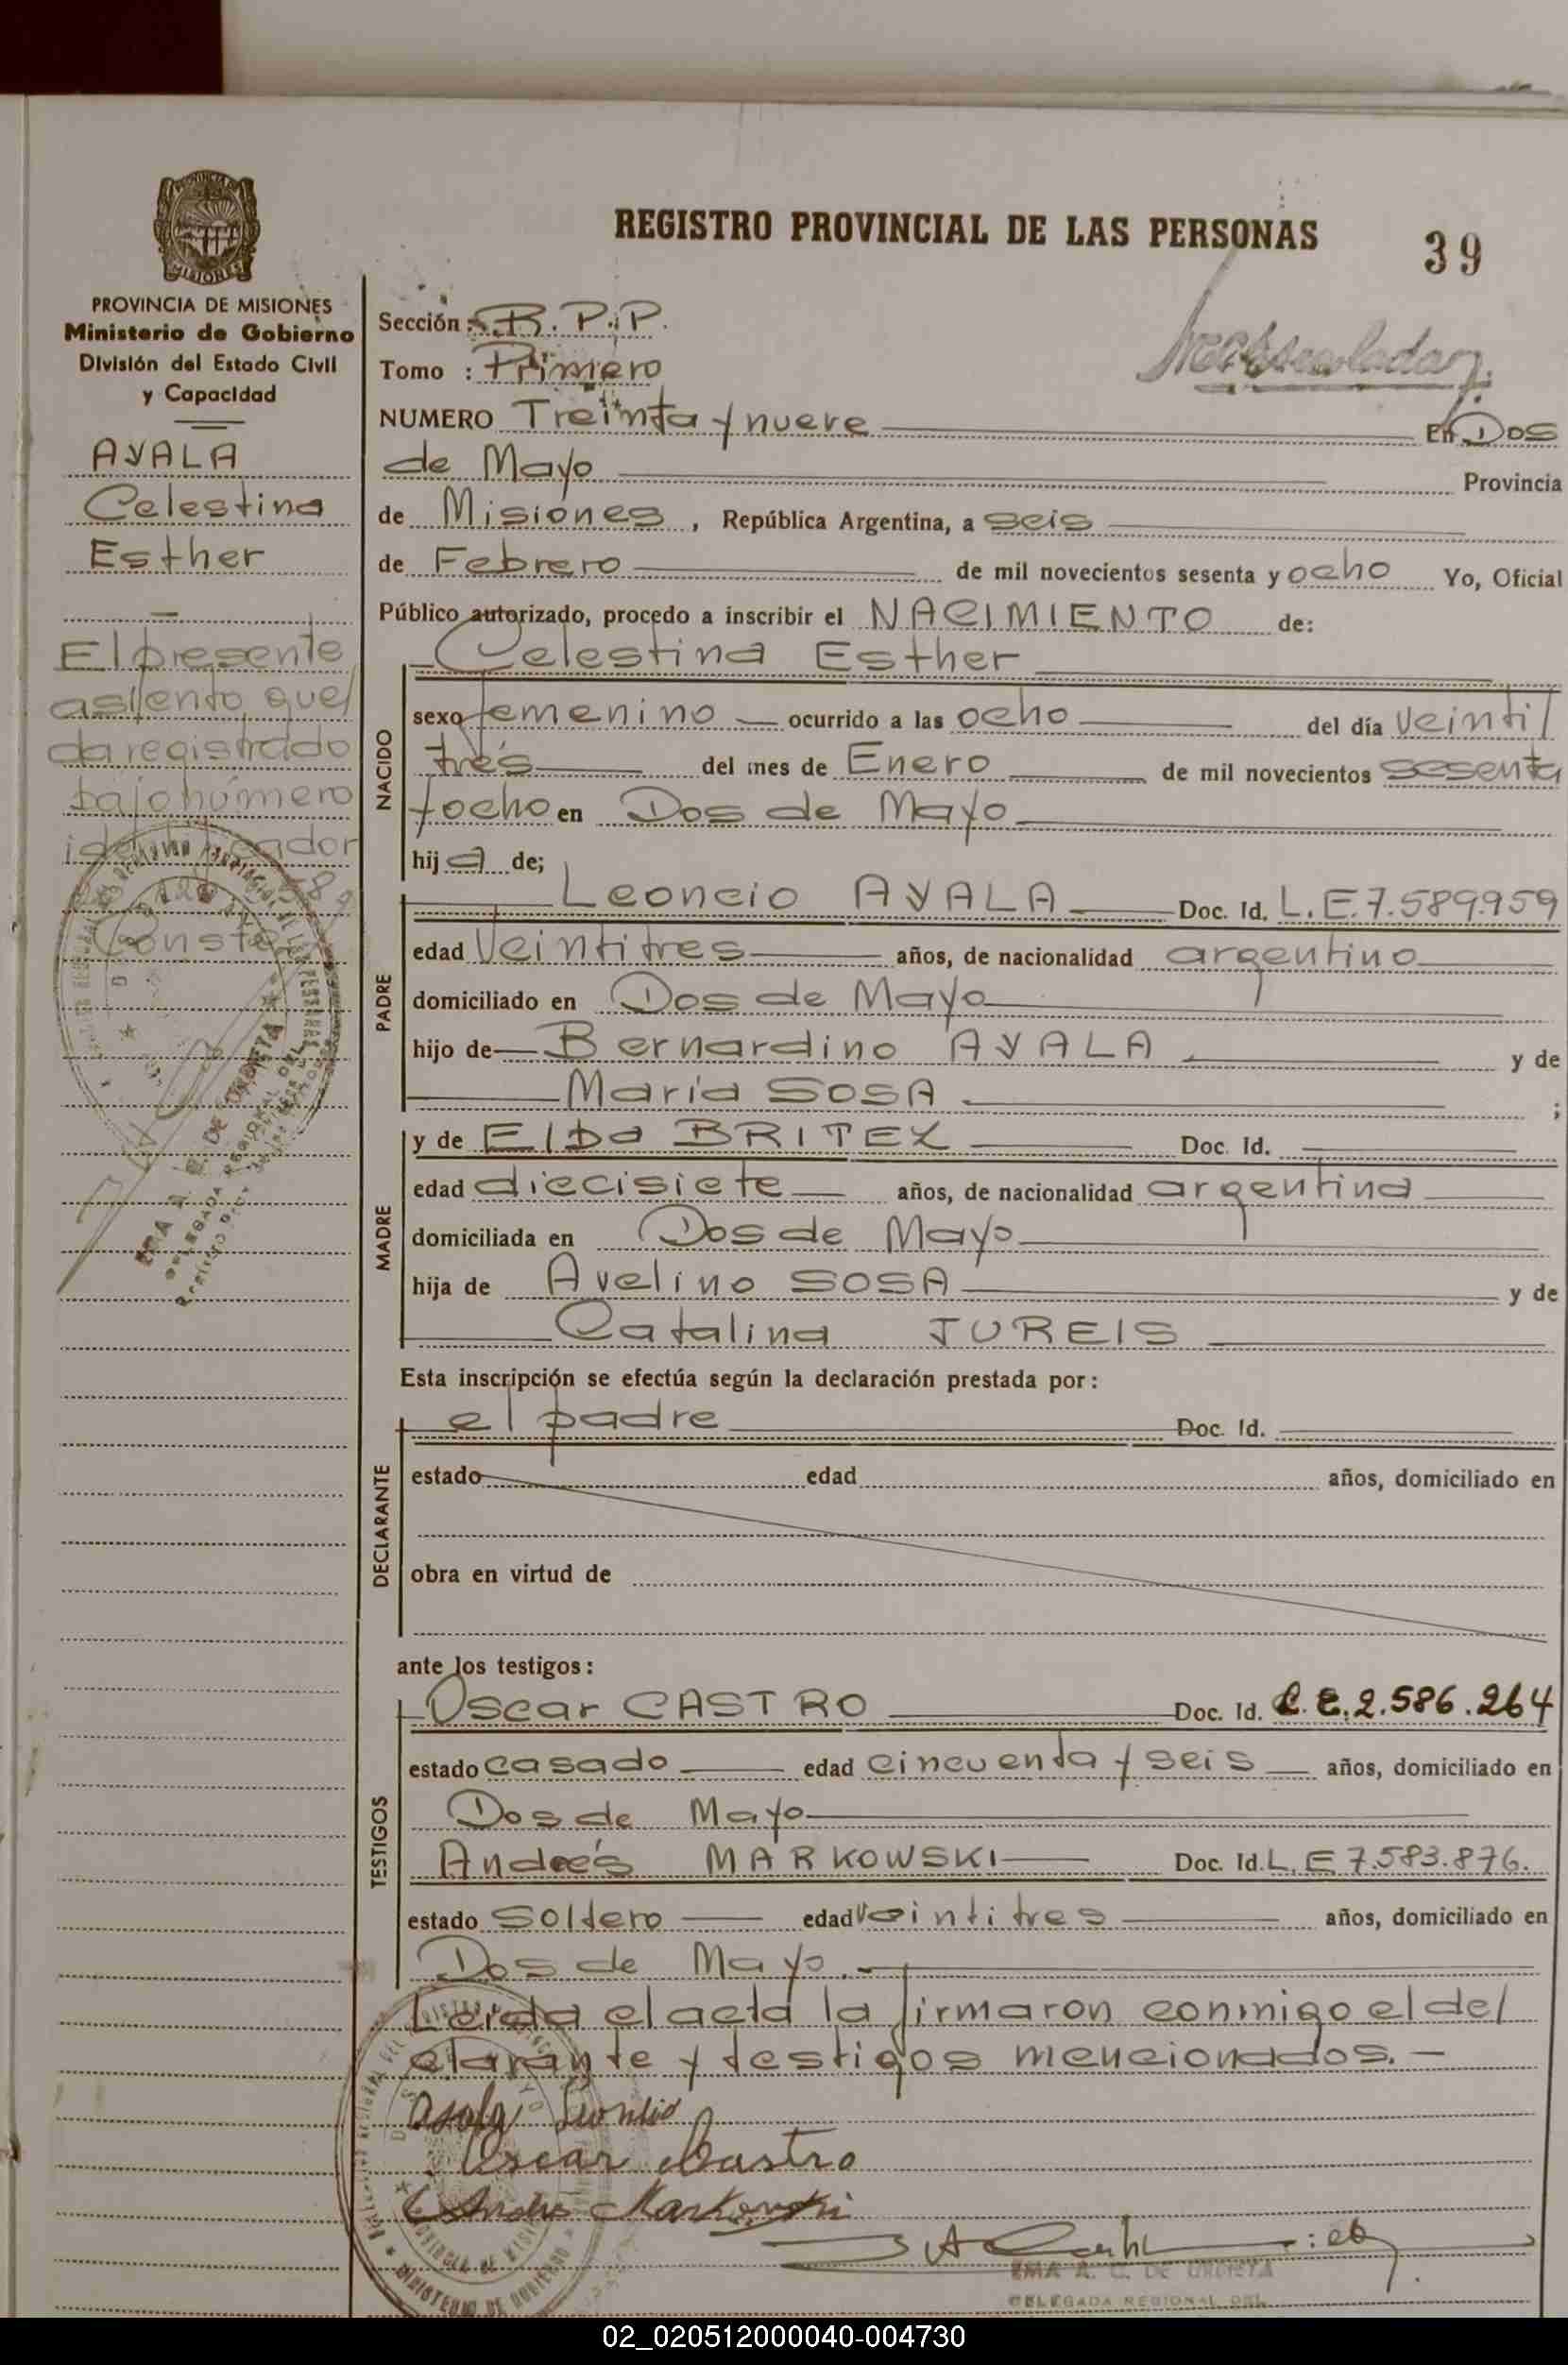 REGISTRO PROVINCIAL DE LAS PERSONAS
39
MISIONES
PROVINCIA DE MISIONES
Ministerio de Gobierno
División del Estado Civil
y Capacidad
AYALA
Celestina
Esther
El presente
asiento que
da registrado
bajo número
Conste
Sección: R.P.P.
Tomo : Primero
NUMERO Treinta y nueve En Dos
de Mayo Provincia
de Misiones, República Argentina, a seis
de Febrero de mil novecientos sesenta y ocho Yo, Oficial
Público autorizado, procedo a inscribir el NACIMIENTO de:
NACIDO
Celestina Esther
sexo femenino ocurrido a las ocho del día veinti
trés del mes de Enero de mil novecientos sesenta
y ocho en Dos de Mayo
hija de;
PADRE
Leoncio AYALA Doc. Id. L.E.7.589.959
edad Veintitres años, de nacionalidad argentino
domiciliado en Dos de Mayo
hijo de Bernardino AYALA y de
María SOSA ;
MADRE
y de Elba BRITEZ Doc. Id.
edad diecisiete años, de nacionalidad argentina
domiciliada en Dos de Mayo
hija de Avelino SOSA y de
Catalina JUREIS
Esta inscripción se efectúa según la declaración prestada por:
DECLARANTE
el padre Doc. Id.
estado edad años, domiciliado en
obra en virtud de
ante los testigos:
TESTIGOS
Oscar CASTRO Doc. Id. L.E.2.586.264
estado casado edad cincuenta y seis años, domiciliado en
Dos de Mayo
Andrés MARKOWSKI Doc. Id. L.E 7.583.876.
estado Soltero edad veintitres años, domiciliado en
Dos de Mayo.
Leída el acta la firmaron conmigo el de
clarante y testigos mencionados.-
Oscar Castro
Andres Markowski
EMA A. C. DE URDIETA
DELEGADA REGIONAL DEL
02_020512000040-004730